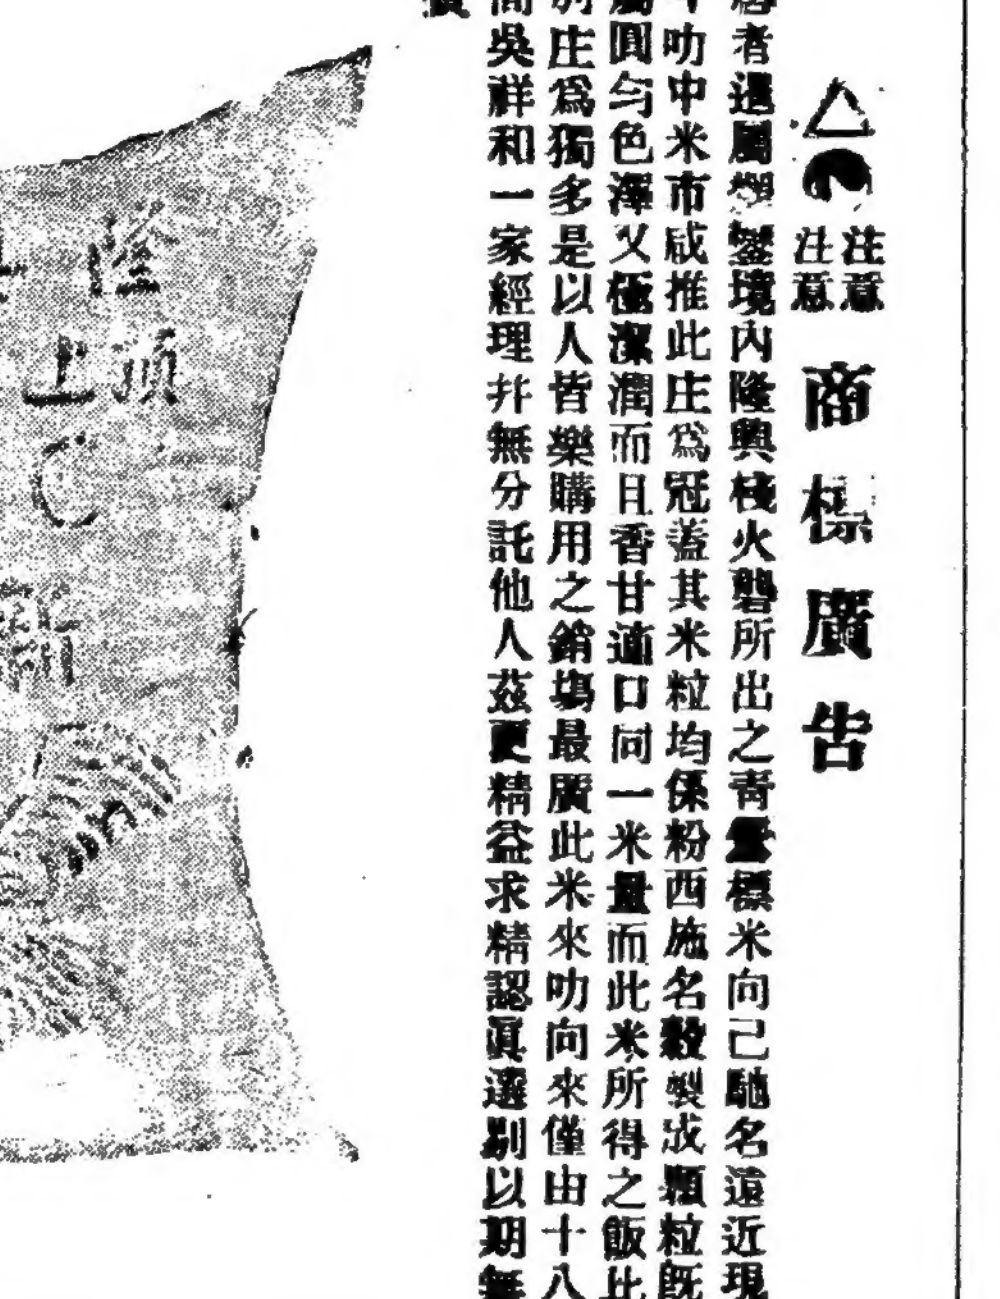 注意
注意
商標廣告
者暹屬彎鑾境內隆興棧火礱所出之青雲標米向己馳名遠近現
叻中米市咸推此庄為冠蓋其米粒均係粉西施名穀製成顆粒既
圓勻色澤又極潔潤而且香甘適口同一米量而此米所得之飯比
庄爲獨多是以人皆樂購用之銷塲最廣此米來叻向來僅由十八
吳祥和一家經理幷無分託他人茲更精益求精認眞選剔以期無
隆
頂上